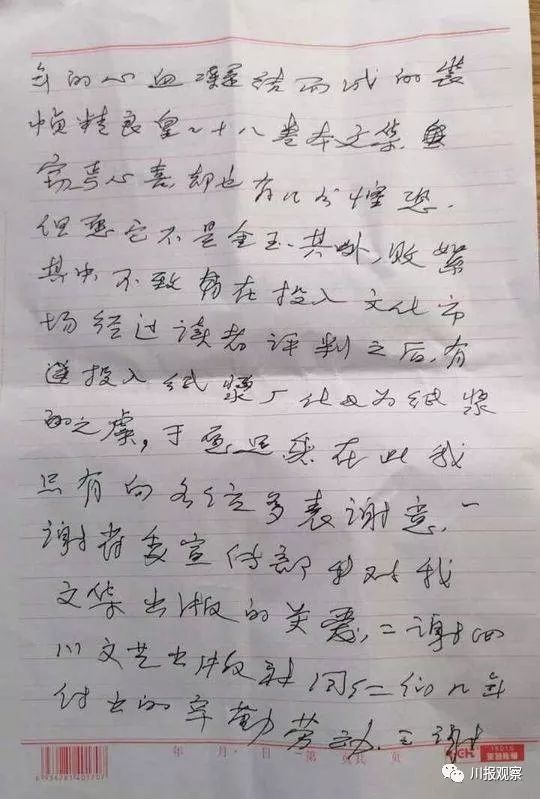 年的心血凝结而成的装
帧精良皇皇十八卷本文集，虽
窃焉心喜，却也有几分惶恐。
但愿它不是金玉其外，败絮
其中，不致在投入文化市
场经过读者评判之后，有
遭投入纸浆厂化为纸浆
的之虞，于愿足矣在此我
只有向各位多表谢意，一
谢省委宣传部对我
文集出版的关爱，二谢四
川文艺出版社同仁们几年
付出的辛勤劳动，三谢
年 月 日 第 页 共 页
6936781401707
川报观察